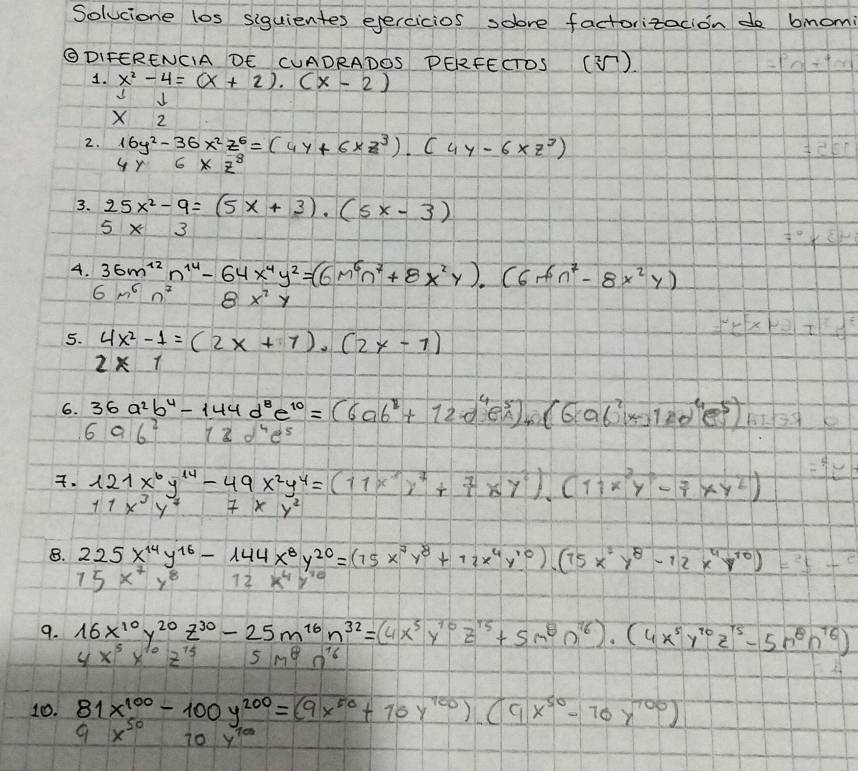 Solucione los siguientes ejercicios sobre factorización de binomi
DIFERENCIA DE CUADRADOS PERFECTOS (²√).
1. x² - 4 = (x + 2). (x - 2)
↓ ↓
x 2
2. 16y² - 36x²z⁶ = (4y + 6xz³). (4y - 6xz³)
4y 6 x z³
3. 25x² - 9 = (5x + 3). (5x - 3)
5 x 3
4. 36m¹²n¹⁴ - 64x⁴y² = (6m⁶n⁷ + 8x²y). (6m⁶n⁷ - 8x²y)
6 m⁶ n⁷ 8 x² y
5. 4x² - 1 = (2x + 1). (2x - 1)
2x 1
6. 36a²b⁴ - 144d⁸e¹⁰ = (6ab² + 12d⁴e⁵). (6ab² - 12d⁴e⁵)
6 a b² 12 d⁴e⁵
7. 121x⁶y¹⁴ - 49x²y⁴ = (11x³y⁷ + 7xy²). (11x³y⁷ - 7xy²)
11x³y⁷ 7 x y²
8. 225x¹⁴y¹⁶ - 144x⁸y²⁰ = (15x⁷y⁸ + 12x⁴y¹⁰). (15x⁷y⁸ - 12x⁴y¹⁰)
15 x⁷ y⁸ 12 x⁴y¹⁰
9. 16x¹⁰y²⁰z³⁰ - 25m¹⁶n³² = (4x⁵y¹⁰z¹⁵ + 5m⁸n¹⁶). (4x⁵y¹⁰z¹⁵ - 5m⁸n¹⁶)
4x⁵y¹⁰z¹⁵ 5 m⁸ n¹⁶
10. 81x¹⁰⁰ - 100y²⁰⁰ = (9x⁵⁰ + 10y¹⁰⁰). (9x⁵⁰ - 10y¹⁰⁰)
9 x⁵⁰ 10 y¹⁰⁰